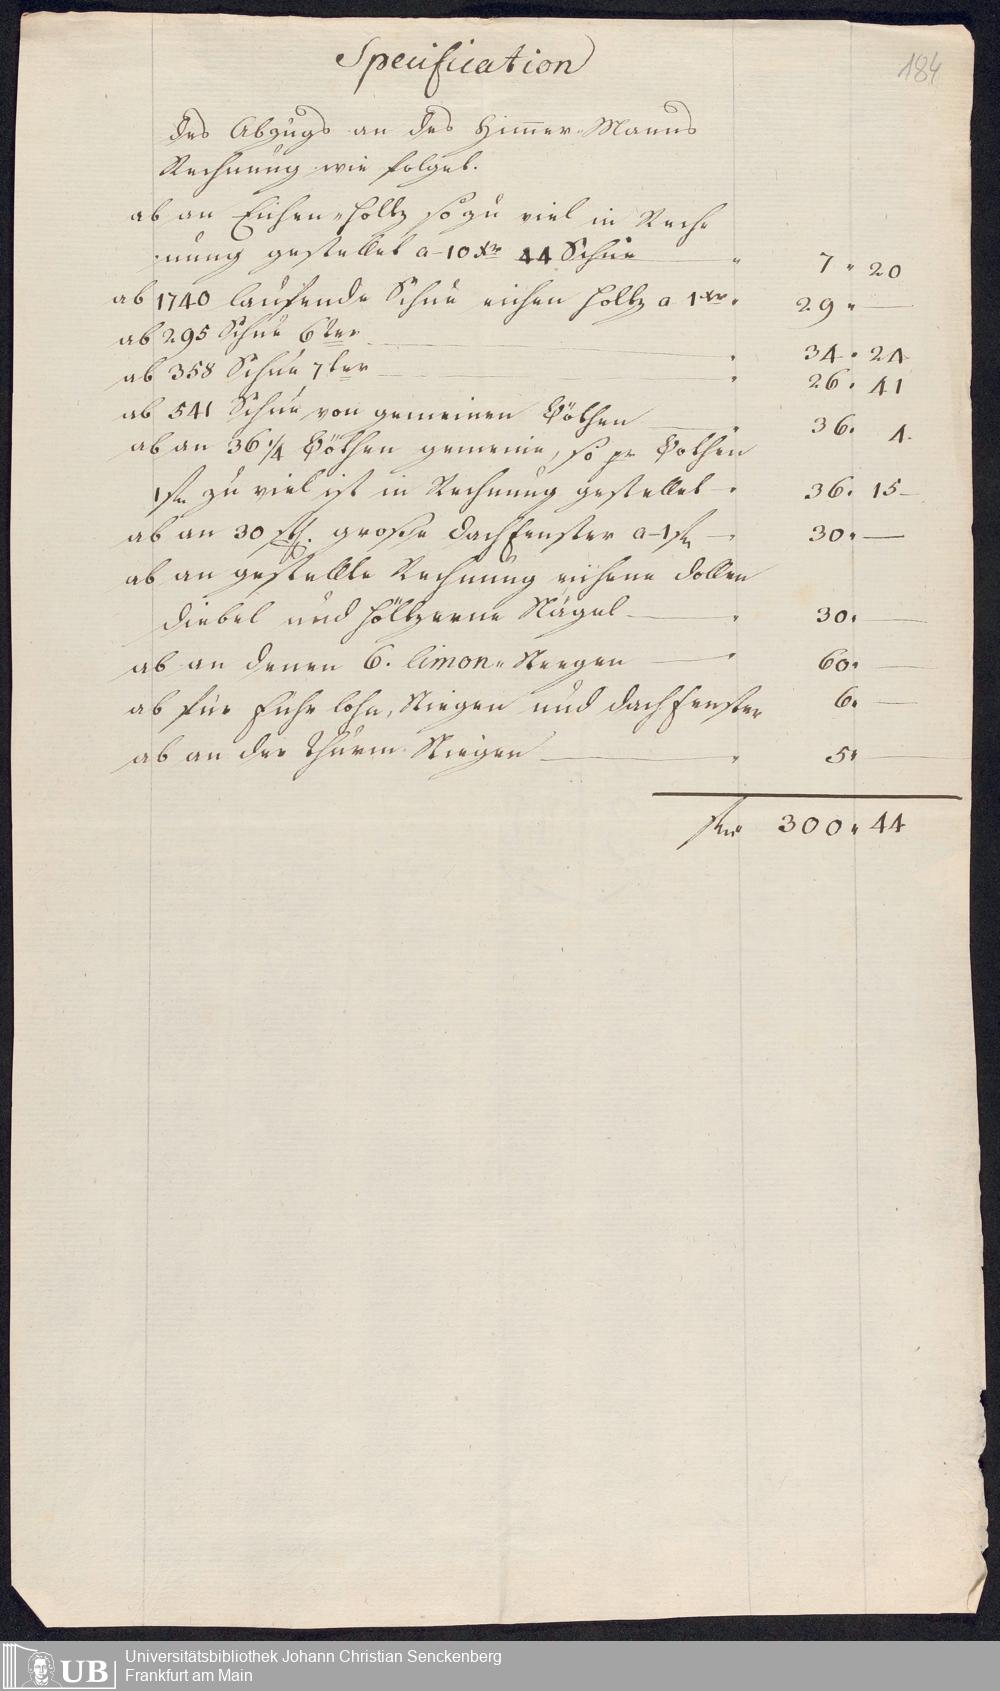 Specification
184
des Abzugs an des Zimmer-Manns
Rechnung wie folget.
ab an Eichen-holtz so zu viel in Rech¬
nung gestellet a 10 xr 44 Schue " 7 " 20
ab 1740 laufende Schue eichen holtz a 1 xr " 29 " —
ab 295 Schue 6ter — " 34 " 24
ab 358 Schue 7ter — " 26 " 41
ab 541 Schue von gemeinen — " 36 " 4
ab an 36 1/4 gemeine, so pr
1 fl zu viel ist in Rechnung gestellet — " 36 " 15 —
ab an 30 stk. grosse Dachfenster a 1 fl — " 30 " —
ab an gestellte Rechnung eichene Dollen
Diebel und höltzerne Nägel — " 30 " —
ab an denen 6. limon-Stiegen — " 60 " —
ab für Fuhrlohn, Stiegen und Dachfenster 6 " —
ab an der Thurm Stiegen — " 5 " —
300 " 44
UB
Universitätsbibliothek Johann Christian Senckenberg
Frankfurt am Main